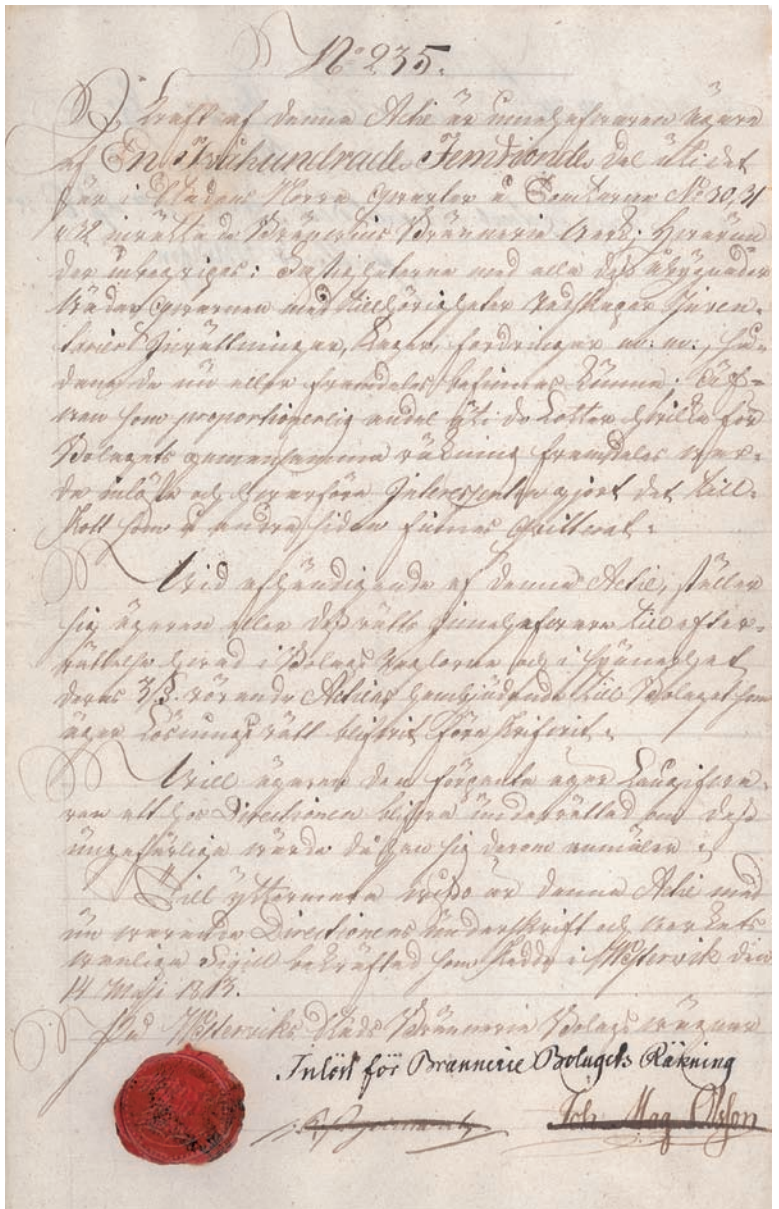 No 235.
I Kraft af denna Actie är innehafvaren ägare
af En Trehundrade Femtionde Del uti det
här i Staden Norra qvarter å Tomterne No 30, 31
& 32 inrättade Brännerie Verk; Hvarun-
der inbegripes: Egendomerne med alla des åbyggnader
Väderqvarnen med Tillhörigheter Redskaper Inven-
tarier Inrättningar, Lager, fordringar m: m:, så-
dana de nu eller framdeles befinnas kunna: Äf-
ven som proportionerlig andel uti de Lotter hvilka för
Bolagets gemensamma räkning framdeles var-
da inlösta och hvarföre Interessenten gjort det till-
skott som å andra sidan finnes qvitterat.
Vid afhändigande af denna Actie, ställer
sig ägaren eller des rätts innehafvare till efter-
rättelse hvad i Bolags Reglorne och i synnerhet
deras 3 §. rörande Acties hembjudande till Bolaget som
äger Lösnings rätt blifvit föreskrifvit.
Vill ägaren den förpanta äger Långifva-
ren att hos Directionen blifva underrättad om des
ungefärliga värde då han sig derom anmäler.
Till yttermera visso är denna Actie med
nu varande Directionens underskrift och verkets
vanliga Sigill bekräftad som skedde i Westervik den
14 Maji 1813.
På Westerviks Stads Brännerie Bolags vägnar
Inlöst för Brännerie Bolagets Räkning
Joh. Mag. Olsson